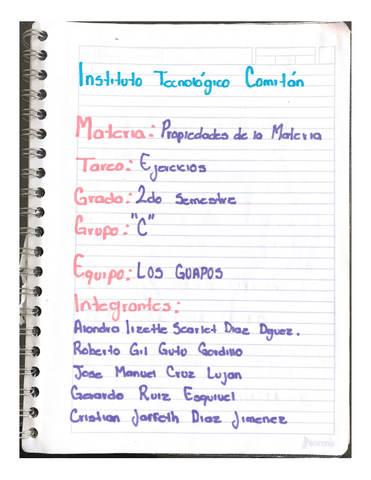 Instituto Tecnológico Comitán
Materia: Propiedades de la Materia
Tarea: Ejercicios
Grado: 2do Semestre
Grupo: "C"
Equipo: LOS GUAPOS
Integrantes:
Alondra lizette Scarlet Diaz Dguez.
Roberto Gil Guto Gordillo
Jose Manuel Cruz Lujan
Gerardo Ruiz Esquivel
Cristian Jarfeth Diaz Jimenez
Norma